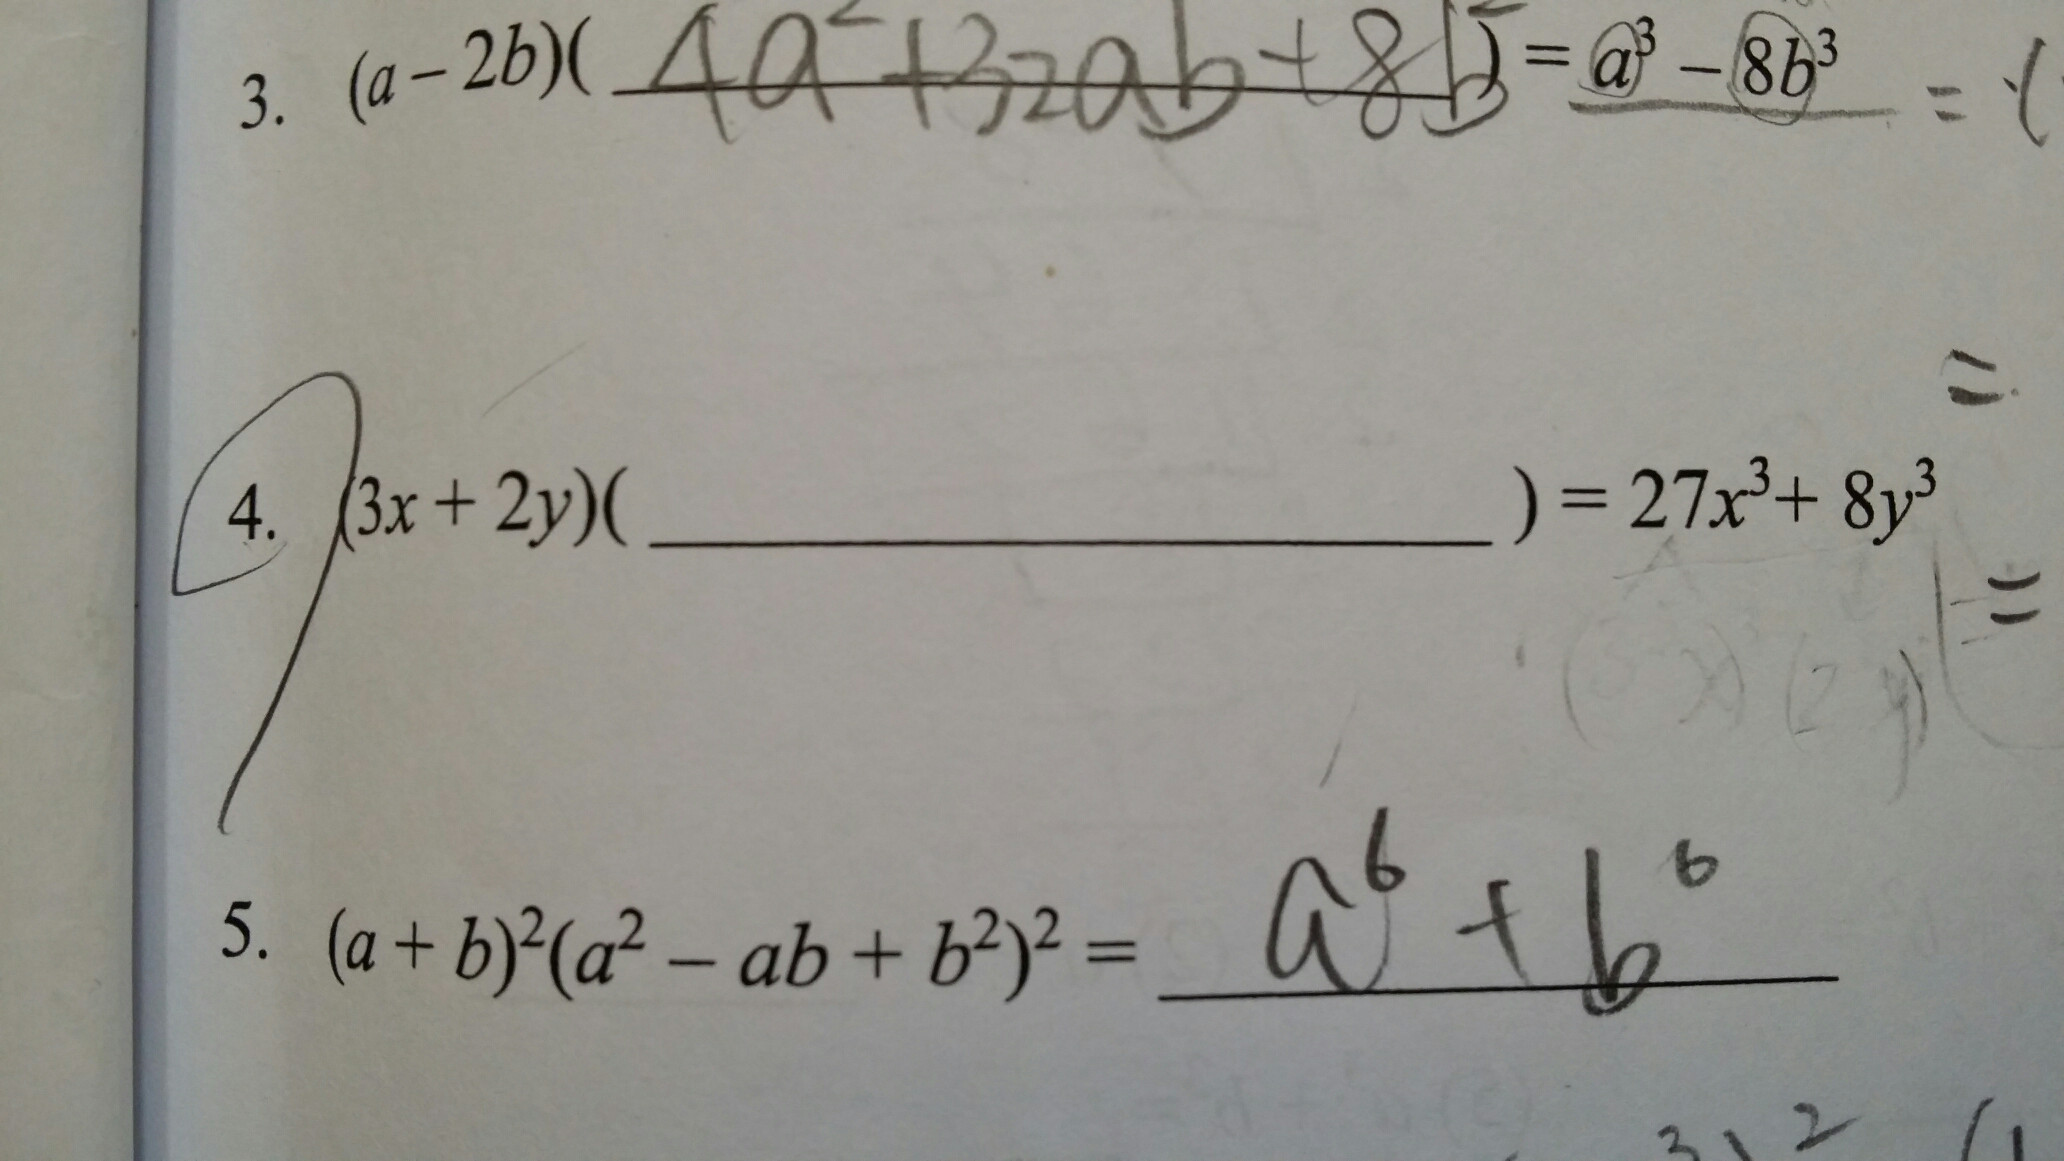 3. (a – 2b)( 4a² + 32ab + 8b² ) = a³ – 8b³ = (
=
4. (3x + 2y)( ) = 27x³ + 8y³
=
(3x)³ (2y)
5. (a + b)²(a² – ab + b²)² = a⁶ + b⁶
3)² (1